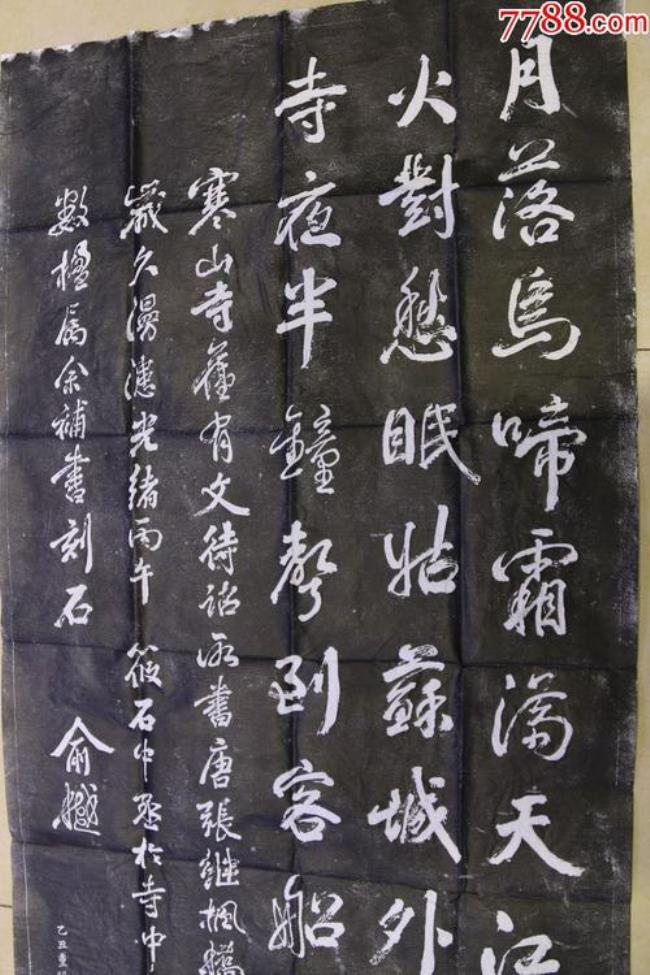 7788.com
月落烏啼霜滿天江
火對愁眠姑蘇城外
寺夜半鐘聲到客船
寒山寺舊有文待詔所書唐張繼楓橋
歲久漫漶光緒丙午筱石中丞於寺中
數楹屬余補書刻石
俞樾
乙丑重